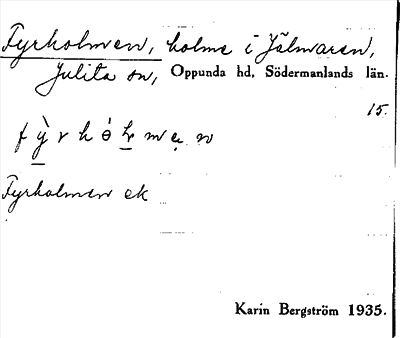 Fyrholmen, holme i Jälmaren,
Julita sn, Oppunda hd, Södermanlands län.
15.
Fyrholmen ek
Karin Bergström 1935.